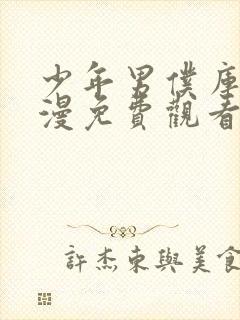 少年男僕庫
漫免費觀看
許杰東與美食